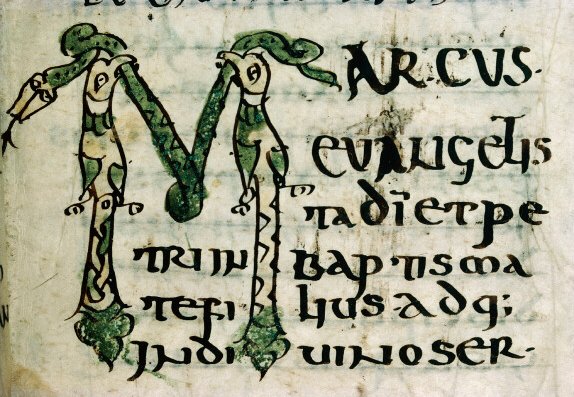 MARCUS·
evangelis
ta dīet pe
tri in baptisma
te filius adq;
in divino ser-